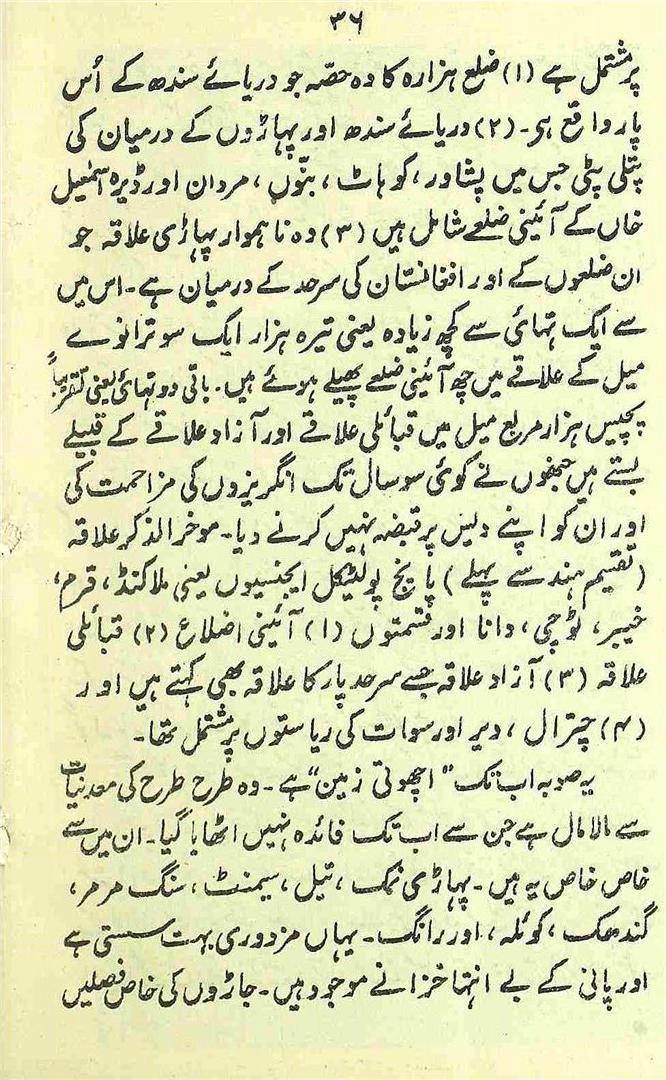 ۳۶
پر مشتمل ہے (۱) ضلع ہزارہ کا وہ حصّہ جو دریائے سندھ کے اُس
پار واقع ہی۔ (۲) دریائے سندھ اور پہاڑوں کے درمیان کی
پتلی پٹی جس میں پشاور، کوہاٹ، بنّوں، مردان اور ڈیرہ اسمٰعیل
خاں کے آئینی ضلعے شامل ہیں (۳) وہ ناہموار پہاڑی علاقہ جو
ان ضلعوں کے اور افغانستان کی سرحد کے درمیان ہے۔ اس میں
سے ایک تہائی سے کچھ زیادہ یعنی تیرہ ہزار ایک سو ترانوے
میل کے علاقے میں چھ آئینی ضلعے پھیلے ہوئے ہیں۔ باقی دو تہائی یعنی تقریباً
پچیس ہزار مربع میل میں قبائلی علاقے اور آزاد علاقے کے قبیلے
بستے ہیں جنھوں نے کوئی سو سال تک انگریزوں کی مزاحمت کی
اور ان کو اپنے دلیس پر قبضہ نہیں کرنے دیا۔ موخرالذکر علاقہ
(تقسیم ہند سے پہلے) پانچ پولٹیکل ایجنسیوں یعنی ملاکنڈ، قرم،
خیبر، ٹوچی، وانا اور قسمتوں (۱) آئینی اضلاع (۲) قبائلی
علاقہ (۳) آزاد علاقہ جسے سرحد پار کا علاقہ بھی کہتے ہیں اور
(۴) چترال، دیر اور سوات کی ریاستوں پر مشتمل تھا۔
یہ صوبہ اب تک "اچھوتی زمین" ہے۔ وہ طرح طرح کی معدنیات
سے مالا مال ہے جن سے اب تک فائدہ نہیں اٹھایا گیا۔ ان میں سے
خاص خاص یہ ہیں۔ پہاڑی نمک، تیل، سیمنٹ، سنگ مرمر،
گندھک، کوئلہ، اور رانگ۔ یہاں مزدوری بہت سستی ہے
اور پانی کے بے انتہا خزانے موجود ہیں۔ جاڑوں کی خاص فصلیں